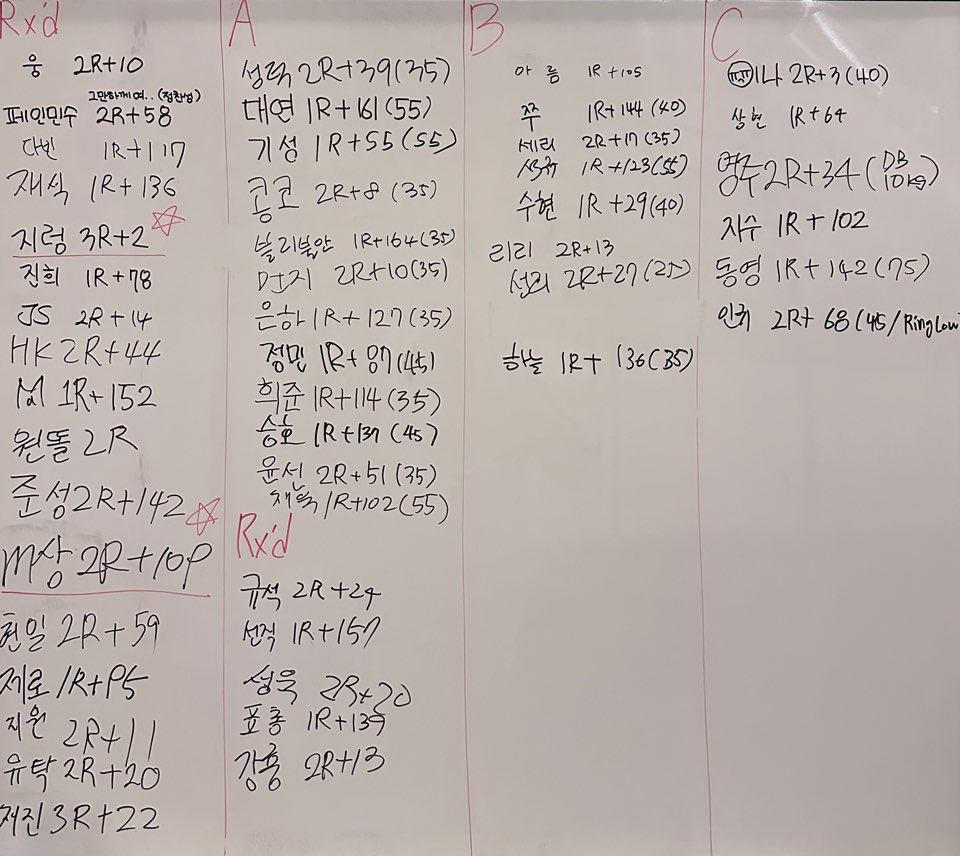 Rx'd
웅 2R+10
그만하께여.. (정찬성)
페인민수 2R+58
다빈 1R+117
재식 1R+136
지렁 3R+2
진희 1R+78
JS 2R+14
HK 2R+44
M 1R+152
원똘 2R
준성 2R+142
m상 2R+109
현일 2R+59
제로 1R+95
지원 2R+11
유탁 2R+20
저진 3R+22
A
성덕 2R+39(35)
대연 1R+161(55)
기성 1R+55(55)
콩코 2R+8(35)
블리불안 1R+164(35)
먼지 2R+10(35)
은하 1R+127(35)
정민 1R+87(45)
희준 1R+114(35)
승호 1R+137(45)
윤선 2R+51(35)
1R+102(55)
Rx'd
규석 2R+24
선직 1R+157
성욱 2R+20
포총 1R+139
강룡 2R+13
B
아름 1R+105
쭈 1R+144(40)
세리 2R+17(35)
1R+123(55)
수현 1R+29(40)
리리 2R+13
섭리 2R+27(25)
하늘 1R+136(35)
C
미나 2R+3(40)
상현 1R+64
영주 2R+34(DB 10kg)
지수 1R+102
동영 1R+142(75)
인귀 2R+68(45/RingLow)